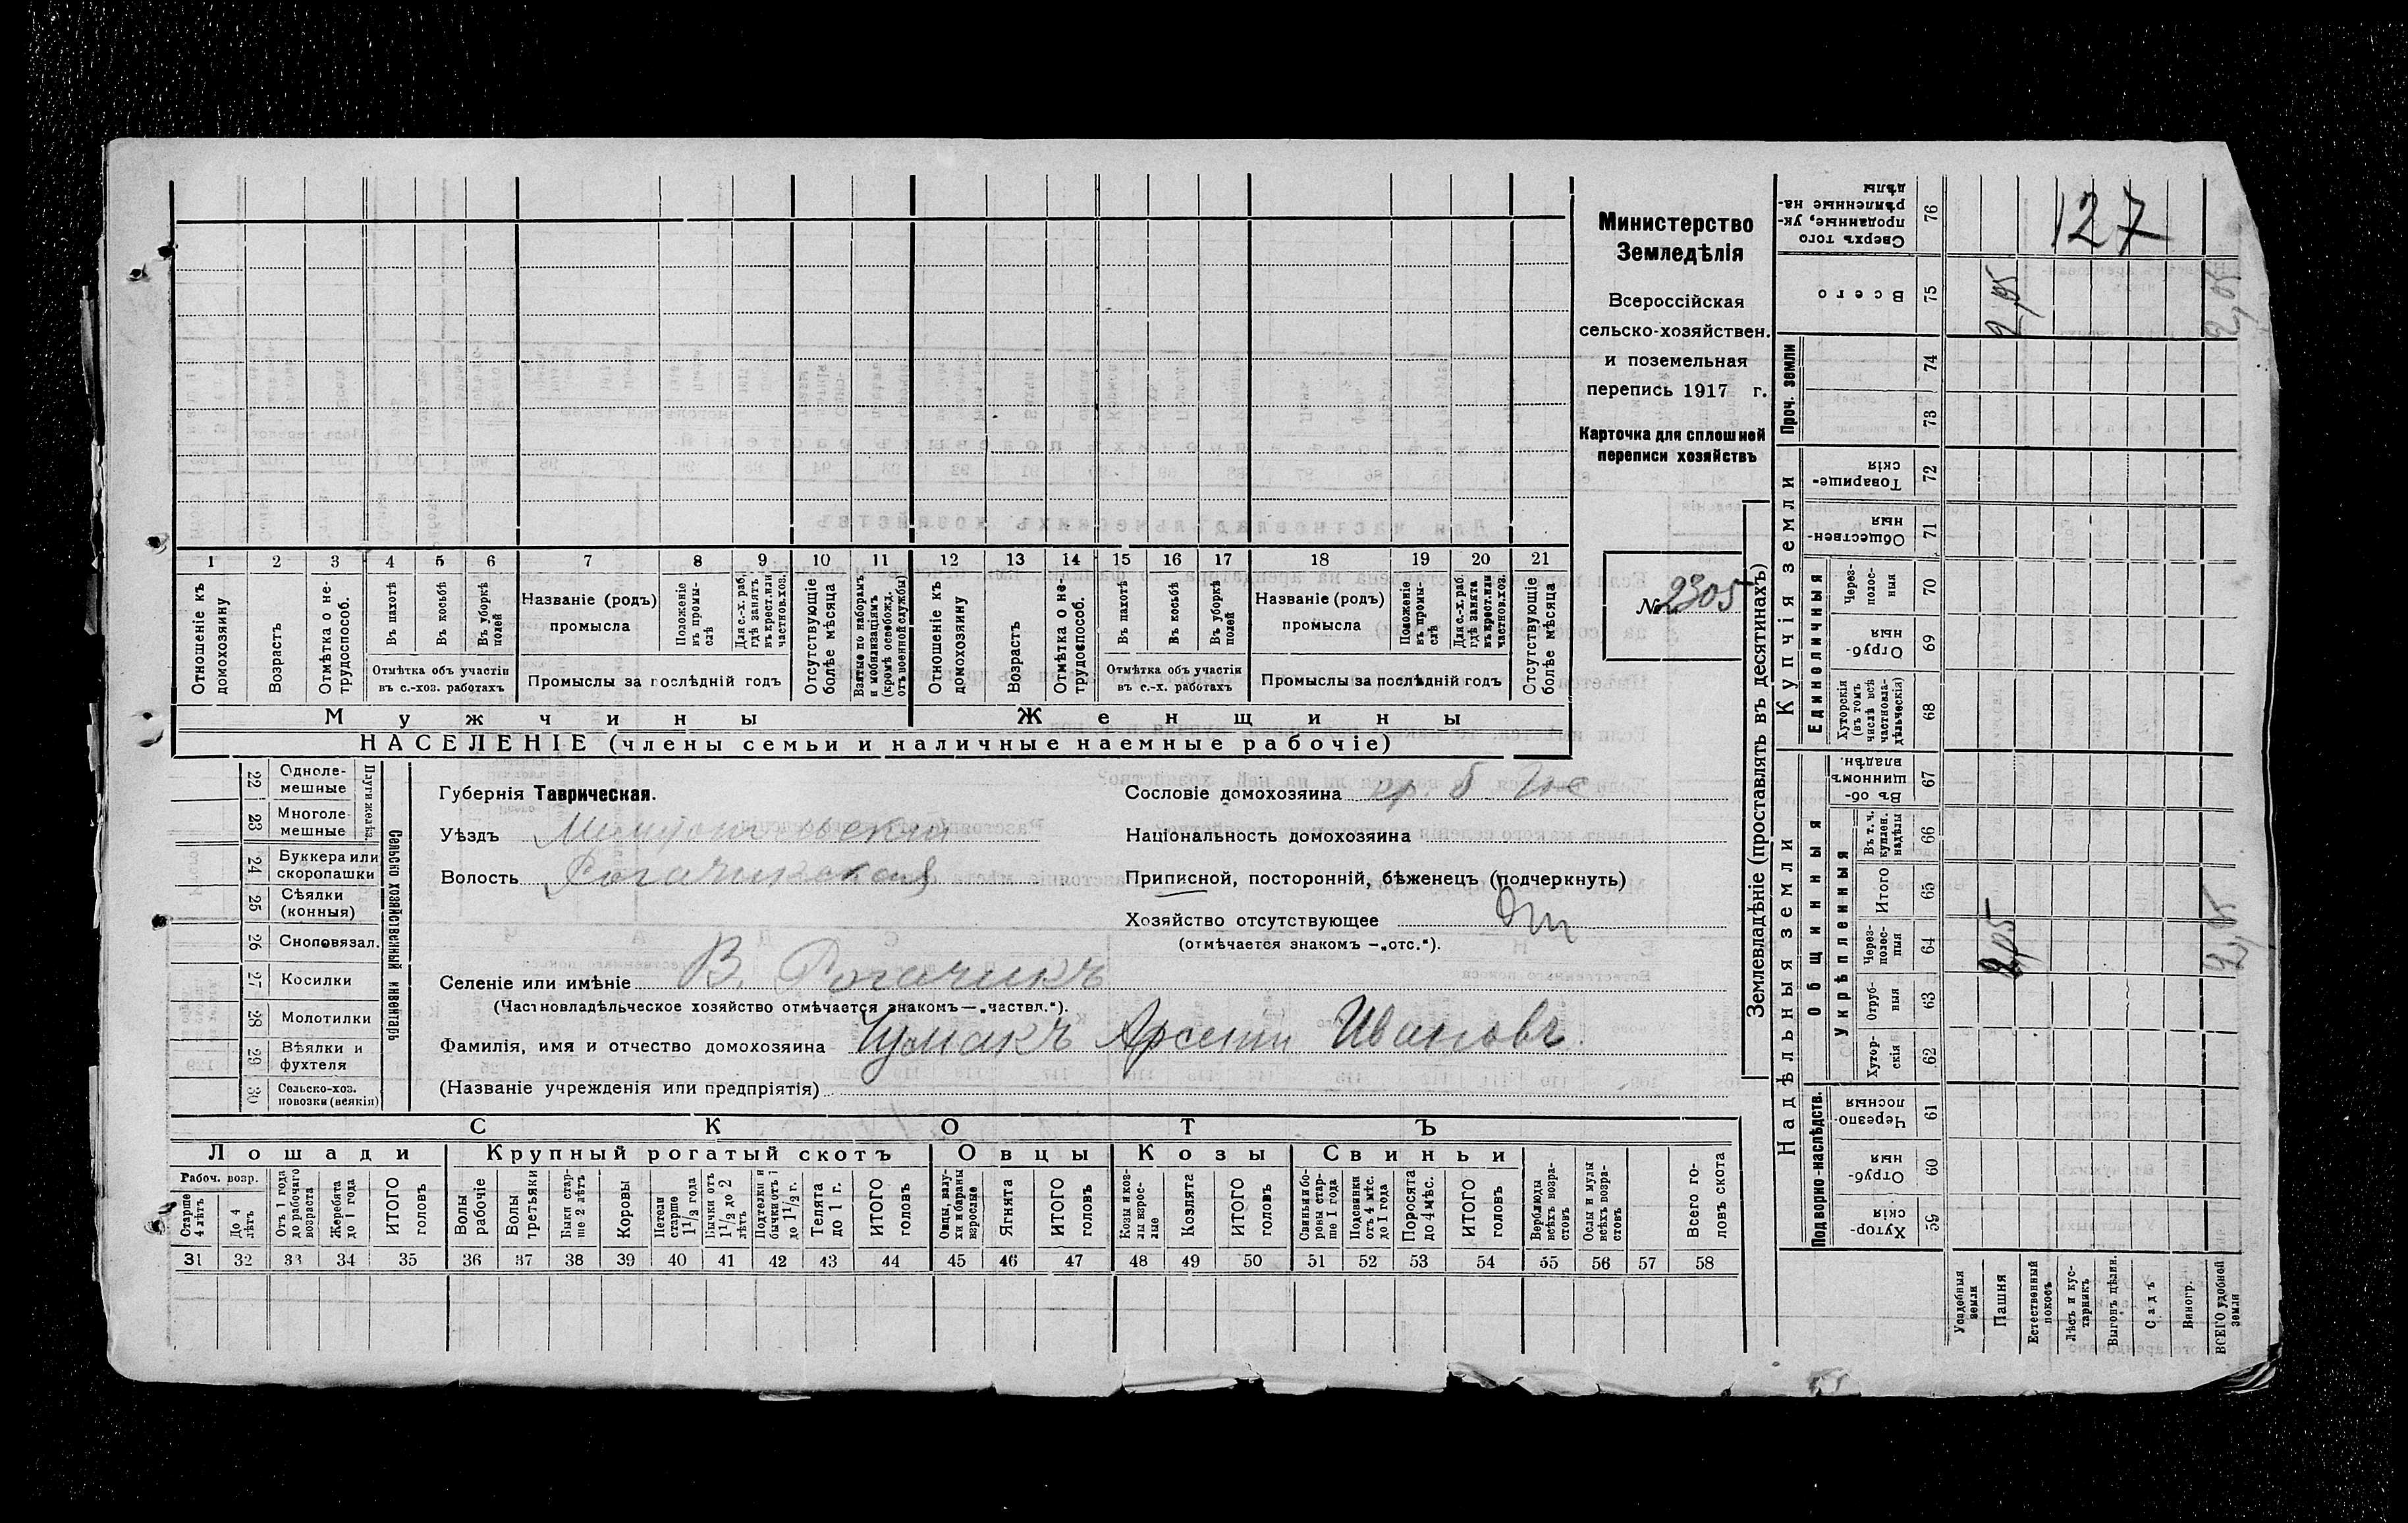 Министерство
Земледѣлія
Всероссійская
сельско-хозяйствен.
и поземельная
перепись 1917 г.
Карточка для сплошней
переписи хозяйствъ
№ 2305
127
1 2 3 4 5 6 7 8 9 10 11 12 13 14 15 16 17 18 19 20 21
Отношеніе къ домохозяину
Возрастъ
Отмѣтка о не-трудоспособ.
Въ пахотѣ
Въ косьбѣ
Въ уборкѣ полей
Отмѣтка объ участіи въ с.-хоз. работахъ
Названіе (родъ) промысла
Положеніе въ промы-слѣ
Для с.-х. раб, гдѣ занятъ въ крест. или частнов. хоз.
Промыслы за послѣдній годъ
Отсутствующіе болѣе мѣсяца
Взятые по наборамъ и мобилизаціямъ (кромѣ освобожд. отъ военной службы)
Отношеніе къ домохозяину
Возрастъ
Отмѣтка о не-трудоспособ.
Въ пахотѣ
Въ косьбѣ
Въ уборкѣ полей
Отмѣтка объ участіи въ с.-х. работахъ
Названіе (родъ) промысла
Положеніе въ промы-слѣ
Для с.-х. раб. гдѣ занята въ крест. или частнов. хоз.
Промыслы за послѣдній годъ
Отсутствующіе болѣе мѣсяца
Мужчины Женщины
НАСЕЛЕНІЕ (члены семьи и наличные наемные рабочіе)
22 Одноле-мешные
23 Многоле-мешные
Плуги желѣз.
24 Буккера или скоропашки
25 Сѣялки (конныя)
26 Сноповязал.
27 Косилки
28 Молотилки
29 Вѣялки и фухтеля
30 Сельско-хоз. повозки (всякія)
Сельско хозяйственный инвентарь
Губернія Таврическая.
Уѣздъ Мелитопольскій
Волость Рогачикская
Селеніе или имѣніе В. Рогачикъ
(Частновладѣльческое хозяйство отмѣчается знакомъ—„частвл.“).
Фамилія, имя и отчество домохозяина Чумакъ Арсеній Ивановъ.
(Названіе учрежденія или предпріятія)
Сословіе домохозяина кр.
Національность домохозяина
Приписной, посторонній, бѣженецъ (подчеркнуть)
Хозяйство отсутствующее
(отмѣчается знакомъ —„отс.“).
СКОТЪ
Лошади Крупный рогатый скотъ Овцы Козы Свиньи
Рабоч. возр.
Старше 4 лѣтъ
До 4 лѣтъ
Отъ 1 года до рабочаго возраста
Жеребята до 1 года
ИТОГО головъ
Волы рабочіе
Волы третьяки
Быки стар-ше 2 лѣтъ
Коровы
Нетели старше 1½ года
Бычки отъ 1½ до 2 лѣтъ
Подтелки и бычки отъ 1 до 1½ г.
Телята до 1 г.
ИТОГО головъ
Овцы, валу-хи и бараны взрослые
Ягнята
ИТОГО головъ
Козы и коз-лы взрос-лые
Козлята
ИТОГО головъ
Свиньи и бо-ровы стар-ше 1 года
Подсвинки отъ 4 мѣс. до 1 года
Поросята до 4 мѣс.
ИТОГО головъ
Верблюды всѣхъ возра-стовъ
Ослы и мулы всѣхъ возра-стовъ
Всего го-ловъ скота
31 32 33 34 35 36 37 38 39 40 41 42 43 44 45 46 47 48 49 50 51 52 53 54 55 56 57 58
Землевладѣніе (проставлять въ десятинахъ)
Надѣльныя земли
Подворно-наслѣдств.
Хутор-скія 59
Отруб-ныя 60
Черезпо-лосныя 61
Общинныя
Укрѣпленныя
Хутор-скія 62
Отруб-ныя 63
Через-полес-ныя 64 2,05 2,05
Итого 65
Въ т. ч. куплен. надѣлы 66
Въ об-щинномъ владѣн. 67
Купчія земли
Единоличныя
Хуторскія (въ томъ числѣ всѣ частновла-дѣльческія) 68
Отруб-ныя 69
Через-полос-ныя 70
Обществен-ныя 71
Товарище-скія 72
Проч. земли
73
74
Всего 75 2,05 2,05
Сверхъ того проданные, ук-рѣпленные на-дѣлы 76
Усадебныя земли
Пашня
Естественный покосъ
Лѣсъ и кус-тарникъ
Выгонъ цѣлин.
Садъ
Виногр.
ВСЕГО удобной земли